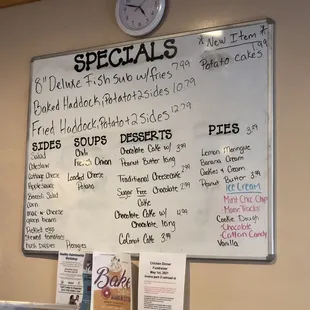 SPECIALS
* New Item *
8" Deluxe Fish Sub w/fries 7.99
Potato Cakes 1.99
Baked Haddock, Potato + 2 sides 10.79
Fried Haddock, Potato + 2 sides 12.79
SIDES
Salad
Coleslaw
Cottage Cheese
Applesauce
Broccoli Salad
Corn
Mac + Cheese
Green Beans
Pickled Egg
Stewed Tomatoes
SOUPS
Chili
French Onion
Loaded Cheese
Potato
DESSERTS
Chocolate Cake w/ 3.99
Peanut Butter Icing
Traditional Cheesecake 2.99
Sugar Free Chocolate 2.99
Cake
Chocolate Cake w/ 4.99
Chocolate Icing
Coconut Cake 3.99
PIES 3.59
Lemon Meringue
Banana Cream
Cookies + Cream
Peanut Butter 3.99
Ice Cream
Mint Choc Chip
Moose Tracks
Cookie Dough
Chocolate
Cotton Candy
Vanilla
Baked